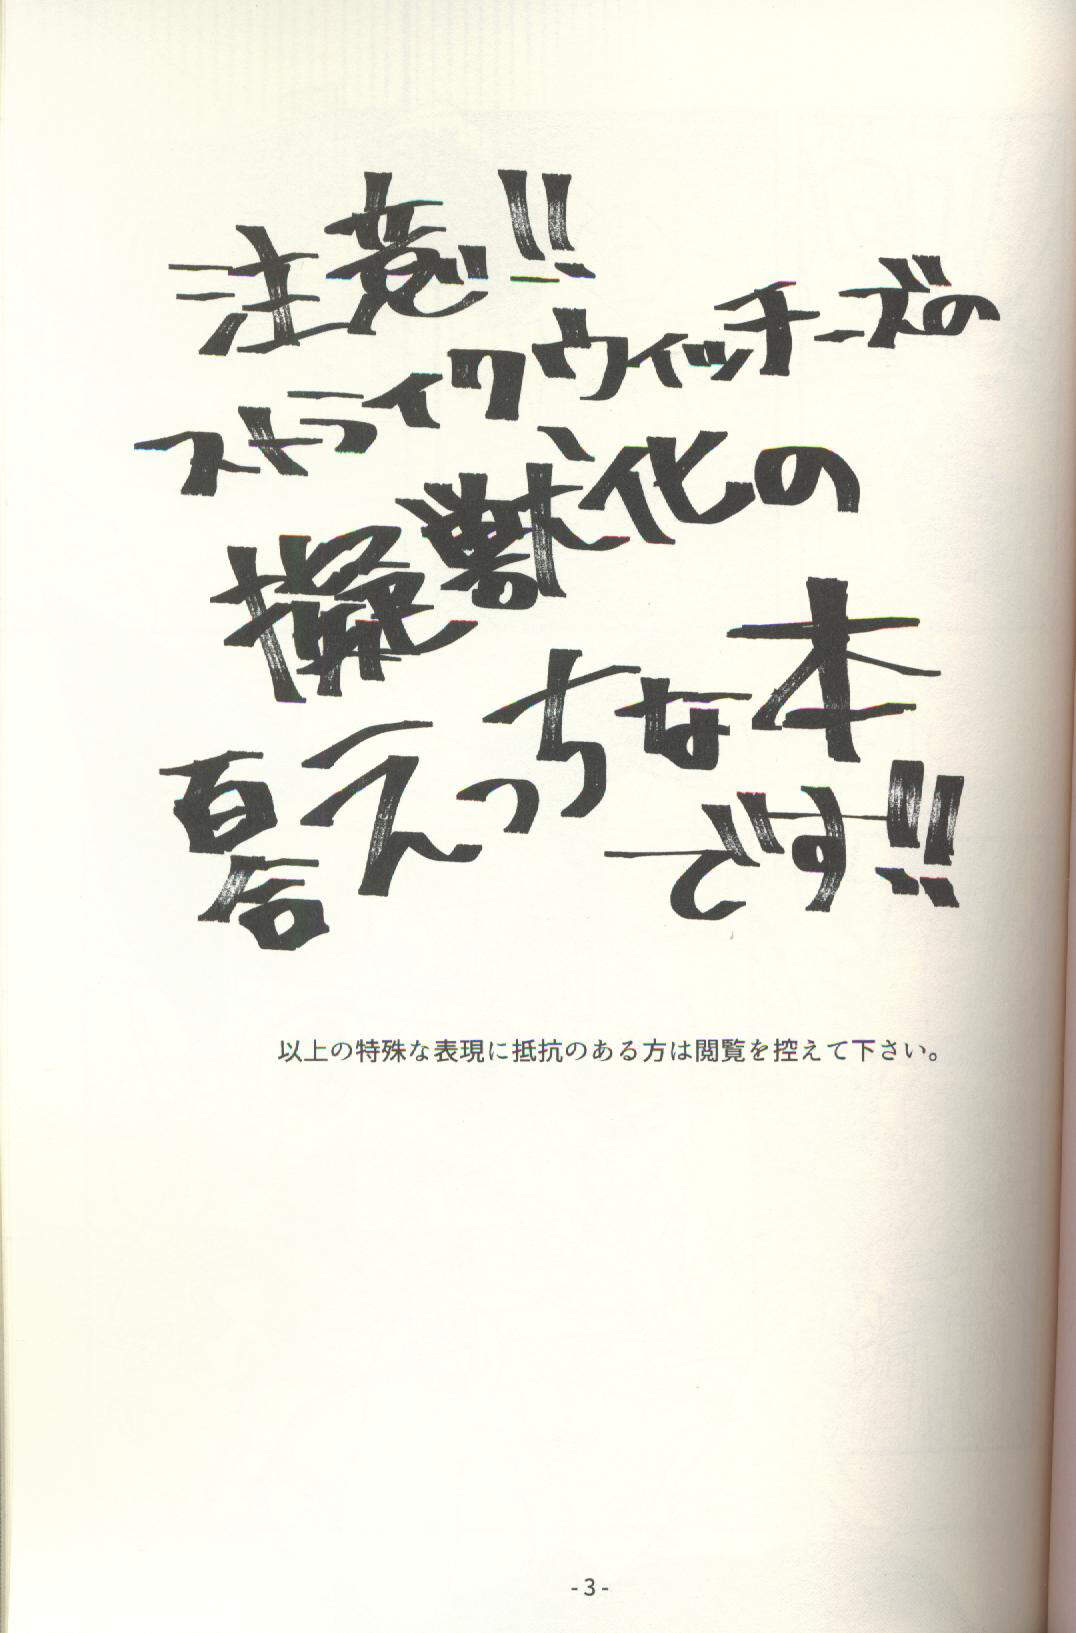 注意!!
ストライクウィッチーズの
擬獣化の
百合えっちな本
です!!
以上の特殊な表現に抵抗のある方は閲覧を控えて下さい。
-3-